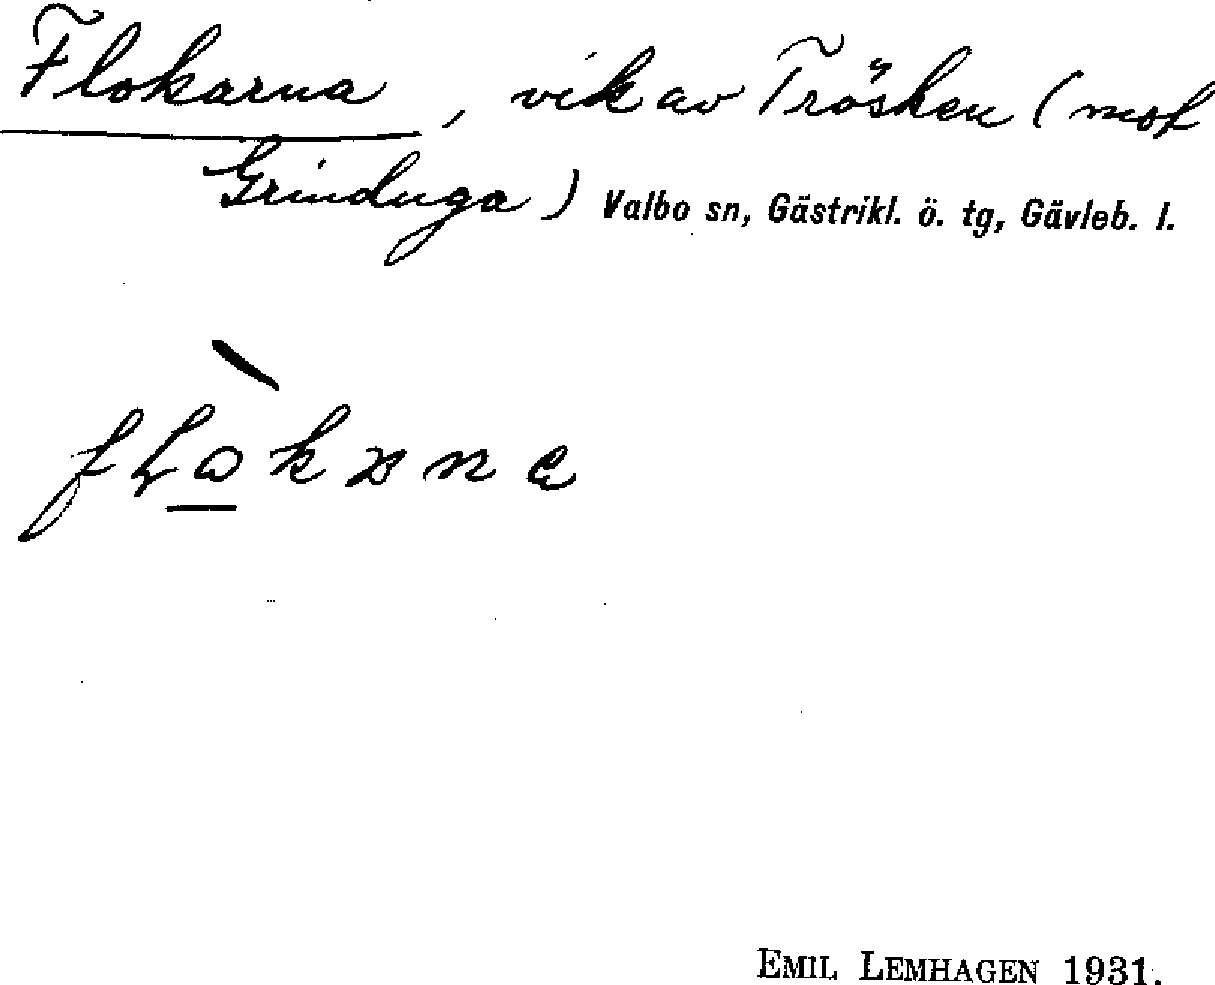 Flokarna, vik av Trösken (mot
Grinduga) Valbo sn, Gästrikl. ö. tg, Gävleb. l.
EMIL LEMHAGEN 1931.